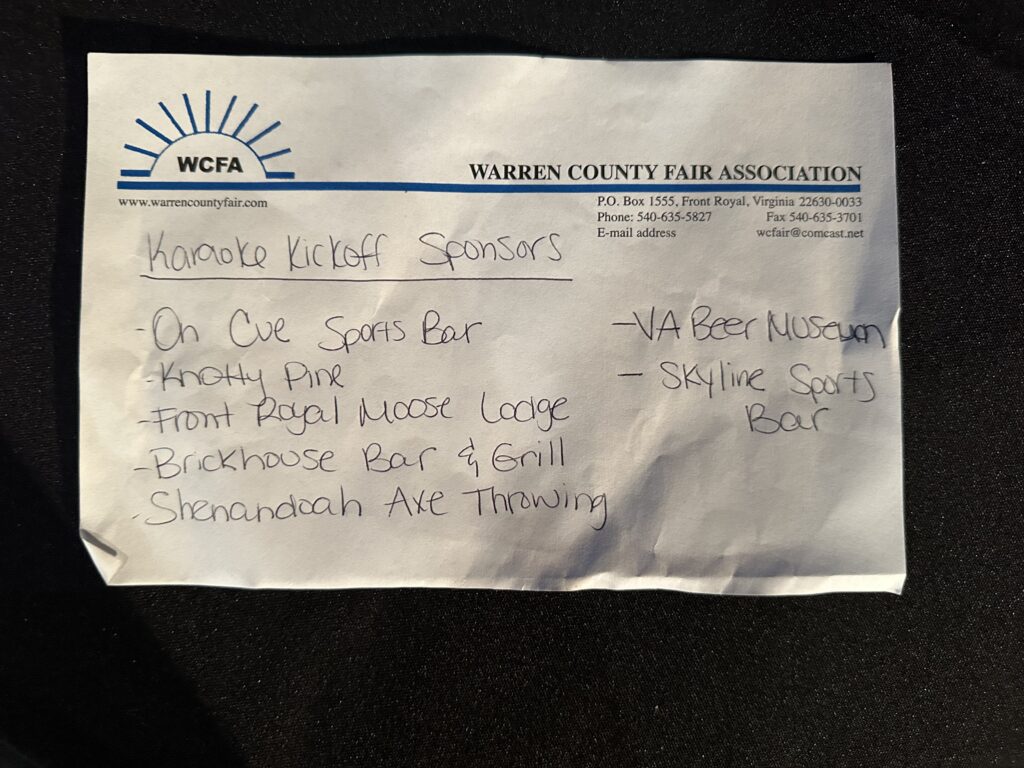 WCFA
WARREN COUNTY FAIR ASSOCIATION
www.warrencountyfair.com
P.O. Box 1555, Front Royal, Virginia 22630-0033
Phone: 540-635-5827 Fax 540-635-3701
E-mail address wcfair@comcast.net
Karaoke Kickoff Sponsors
- On Cue Sports Bar
- Knotty Pine
- Front Royal Moose Lodge
- Brickhouse Bar & Grill
- Shenandoah Axe Throwing
- VA Beer Museum
- Skyline Sports
Bar